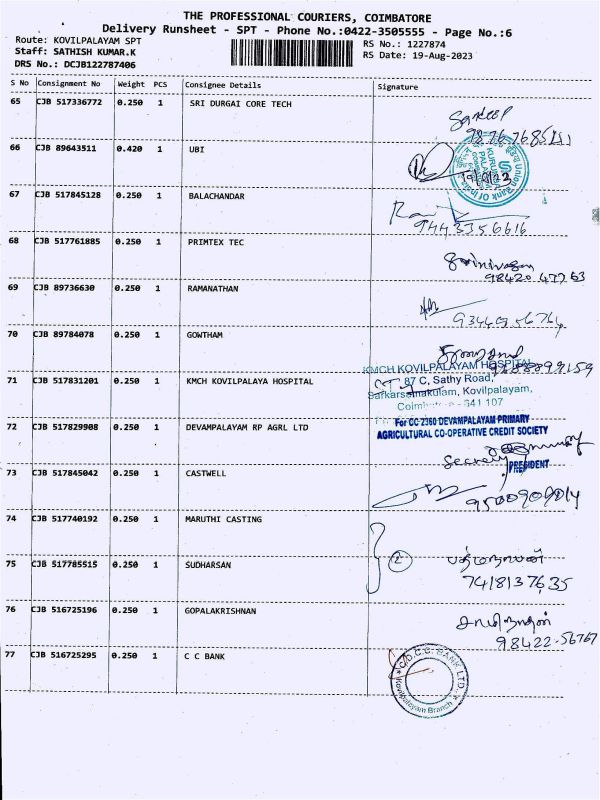 THE PROFESSIONAL COURIERS, COIMBATORE
Delivery Runsheet - SPT - Phone No.:0422-3505555 - Page No.:6
Route: KOVILPALAYAM SPT
RS No.: 1227874
Staff: SATHISH KUMAR.K
RS Date: 19-Aug-2023
DRS No.: DCJB122787406
S No Consignment No Weight PCS Consignee Details Signature
65 CJB 517336772 0.250 1 SRI DURGAI CORE TECH
Sandeep
66 CJB 89643511 0.420 1 UBI
Union Bank Of India
67 CJB 517845128 0.250 1 BALACHANDAR
9443356616
68 CJB 517761885 0.250 1 PRIMTEX TEC
Srinivasan
98420 47763
69 CJB 89736630 0.250 1 RAMANATHAN
70 CJB 89784078 0.250 1 GOWTHAM
KMCH KOVILPALAYAM HOSPITAL
71 CJB 517831201 0.250 1 KMCH KOVILPALAYA HOSPITAL
87 C, Sathy Road,
Sarkarsamakulam, Kovilpalayam,
641 107
72 CJB 517829908 0.250 1 DEVAMPALAYAM RP AGRL LTD
For CC 2360 DEVAMPALAYAM PRIMARY
AGRICULTURAL CO-OPERATIVE CREDIT SOCIETY
Secretary PRESIDENT
73 CJB 517845042 0.250 1 CASTWELL
9500909014
74 CJB 517740192 0.250 1 MARUTHI CASTING
75 CJB 517785515 0.250 1 SUDHARSAN
2
பத்மநாபன்
7418137635
76 CJB 516725196 0.250 1 GOPALAKRISHNAN
98422-56767
77 CJB 516725295 0.250 1 C C BANK
C.D.C.C. BANK LTD.
Kovilpalayam Branch